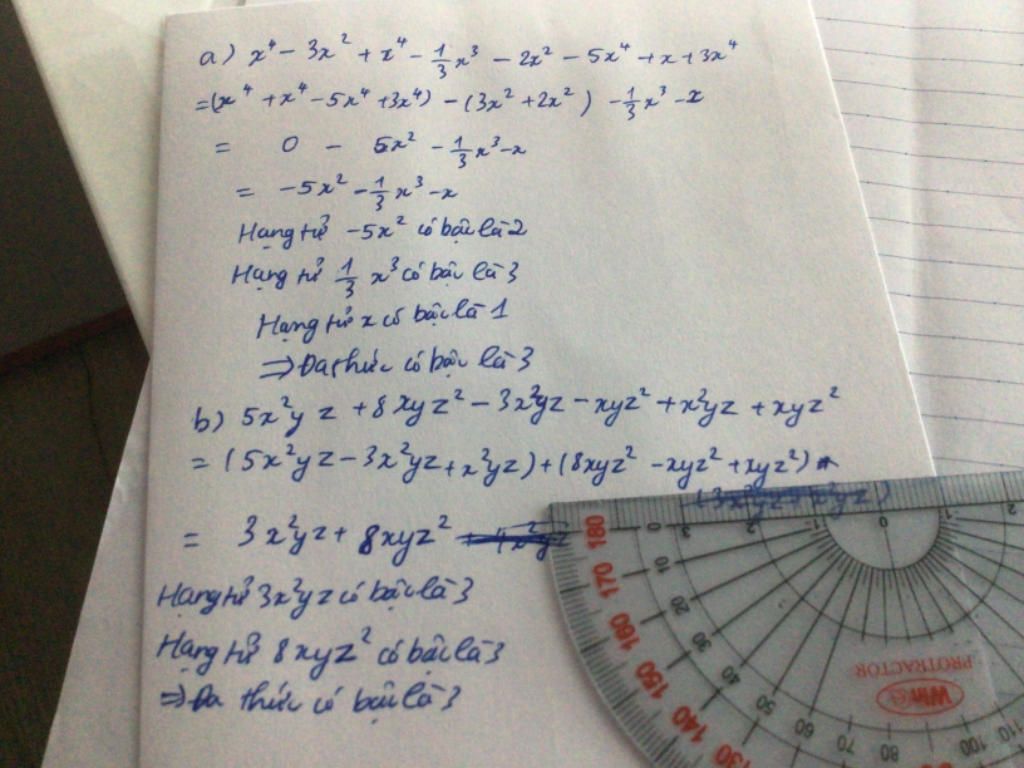 a) x⁴ - 3x² + x⁴ - 1/3 x³ - 2x² - 5x⁴ + x + 3x⁴
= (x⁴ + x⁴ - 5x⁴ + 3x⁴) - (3x² + 2x²) - 1/3 x³ - x
= 0 - 5x² - 1/3 x³ - x
= -5x² - 1/3 x³ - x
Hạng tử -5x² có bậc là 2
Hạng tử 1/3 x³ có bậc là 3
Hạng tử x có bậc là 1
⇒ Đa thức có bậc là 3
b) 5x²yz + 8xyz² - 3x²yz - xyz² + x²yz + xyz²
= (5x²yz - 3x²yz + x²yz) + (8xyz² - xyz² + xyz²)
= 3x²yz + 8xyz²
Hạng tử 3x²yz có bậc là 3
Hạng tử 8xyz² có bậc là 3
⇒ Đa thức có bậc là 3
180 170 160 150 140 130
0 10 20 30 40 50 60 70 80 90 100 110
3 2 1 0 1 2
PROTRACTOR